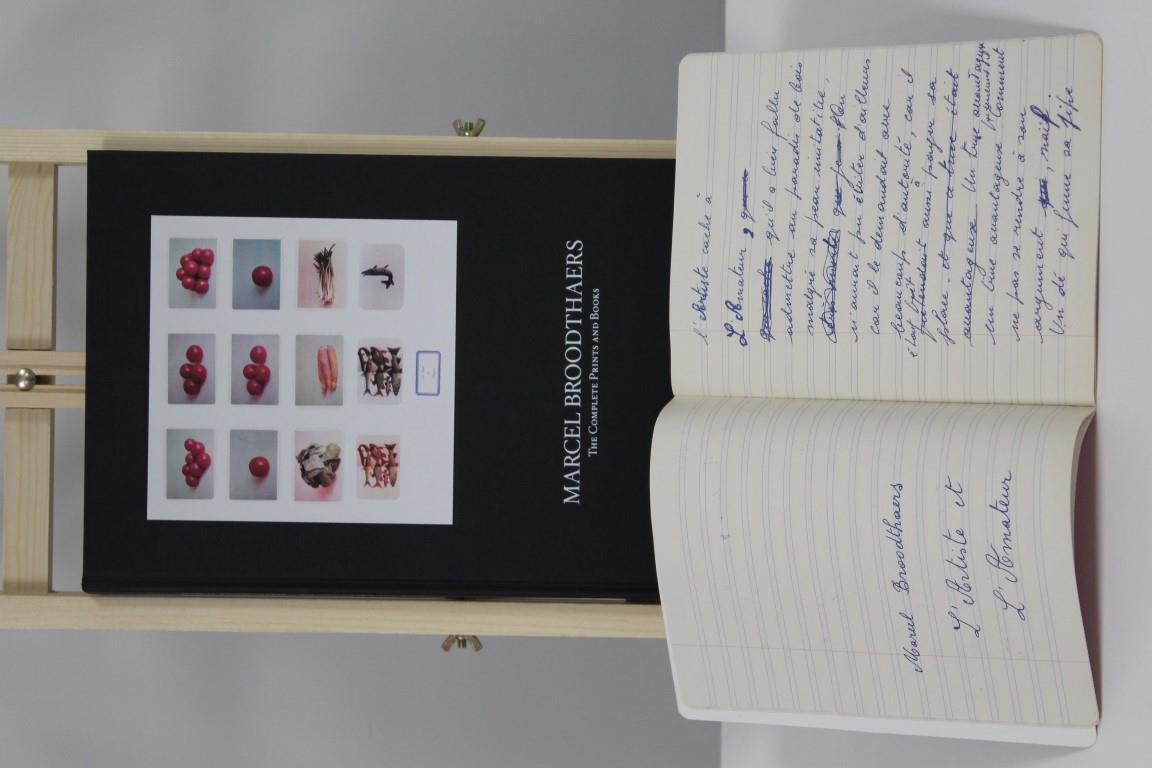 MARCEL BROODTHAERS
THE COMPLETE PRINTS AND BOOKS
Marcel Broodthaers
L'Artiste et
L'Amateur
l'Artiste cache à
L'Amateur,
qu'il a bien fallu
admettre au paradis de bois
malgré sa peau imitative,
On
n'aurait pu éviter d'ailleurs
car il le demandait avec
beaucoup d'autorité, car il
prétendait aussi payer sa
place. et que ce truc était
avantageux. Un truc avantageux
comment
ne pas se rendre à son
argument, naïf.
Un dé qui fume sa pipe